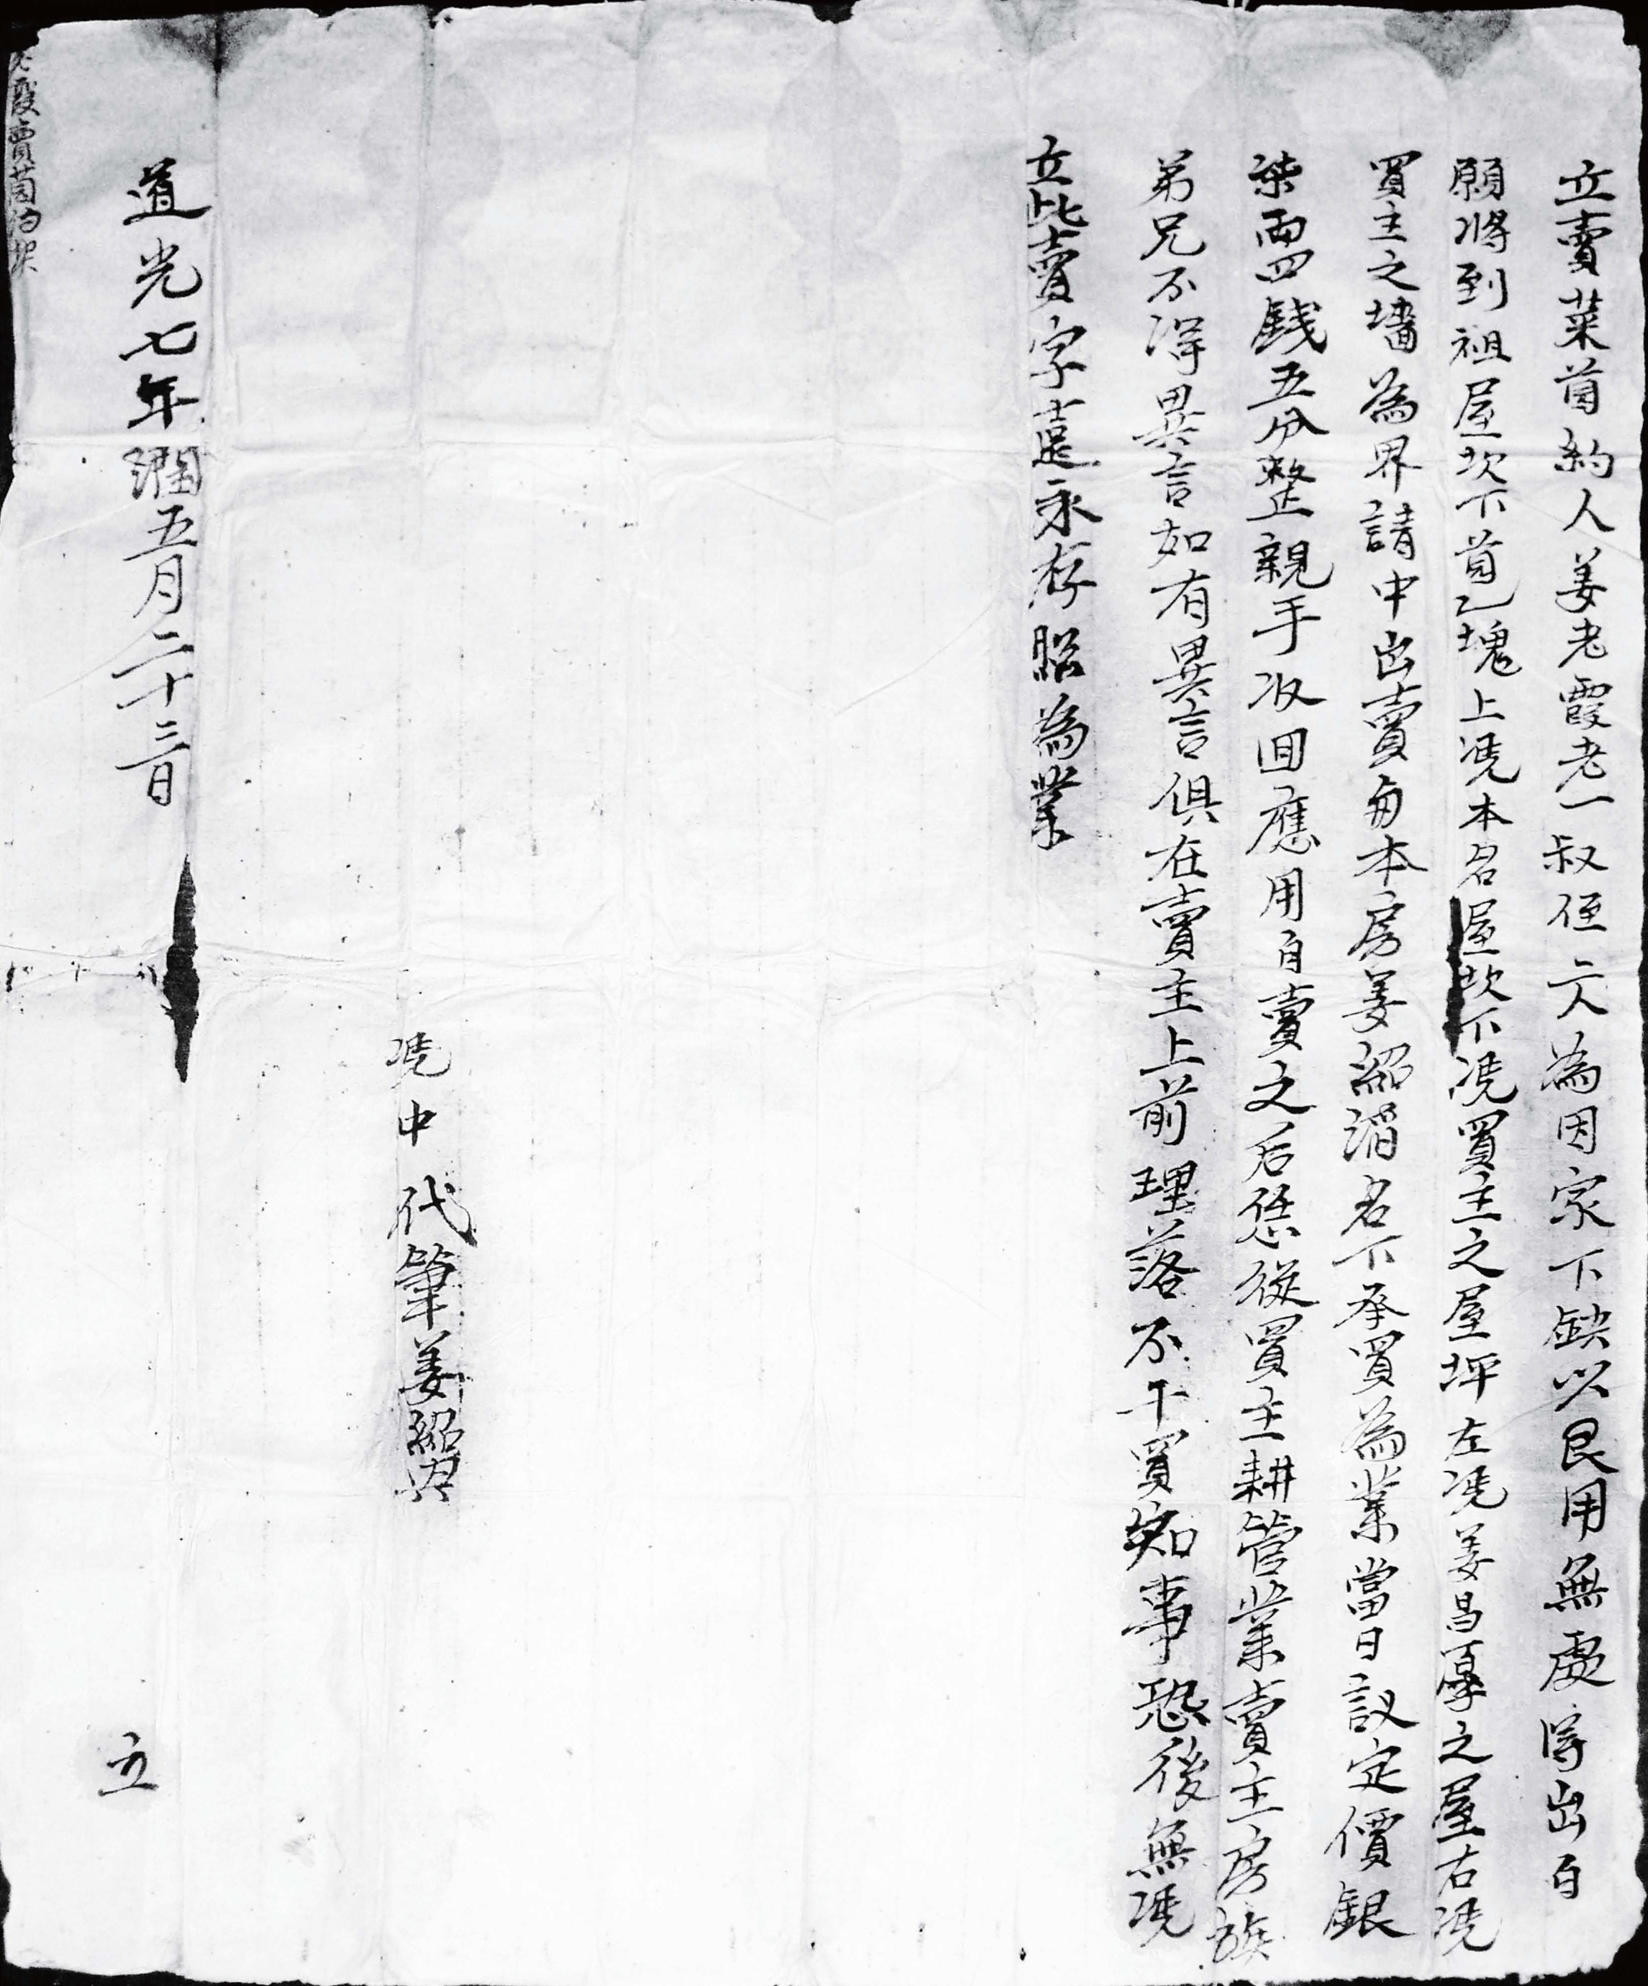 立賣菜茵約人姜老霞老一叔侄二人為因家下缺以艮用無處淂出自
願將到祖屋坎下首乙塊上凴本名屋坎下凴買主之屋坪左凴姜昌厚之屋右凴
買主之墻為界請中出賣與本房姜紹滔名下承買為業當日議定價銀
柒兩四錢五分整親手收回應用自賣之后恁從買主耕管業賣主房族
弟兄不淂異言如有異言俱在賣主上前理落不干買知事恐後無凴
立此賣字遠永存照為業
凴中代筆姜紹
道光七年潤五月二十三日
立
老霞賣茵約